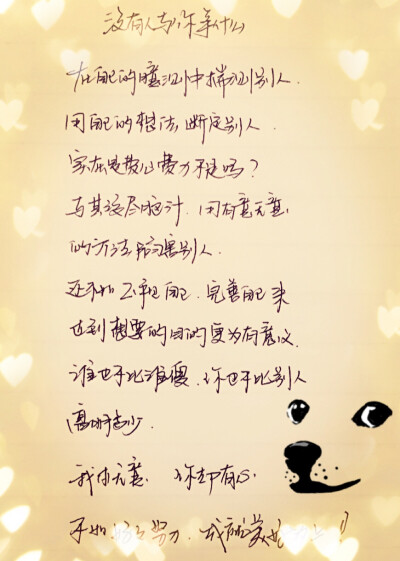 没有人与你争什么
在自己的臆测中揣测别人.
用自己的想法,断定别人.
实在是费心费力不是吗?
与其没尽脑汁.用有意无意
的方法陷害别人.
还不如正视自己.完善自己来
达到想要的目的更为有意义.
谁也不比谁傻.你也不比别人
高明多少.
我本无意.你却有心.
不如 努力.我